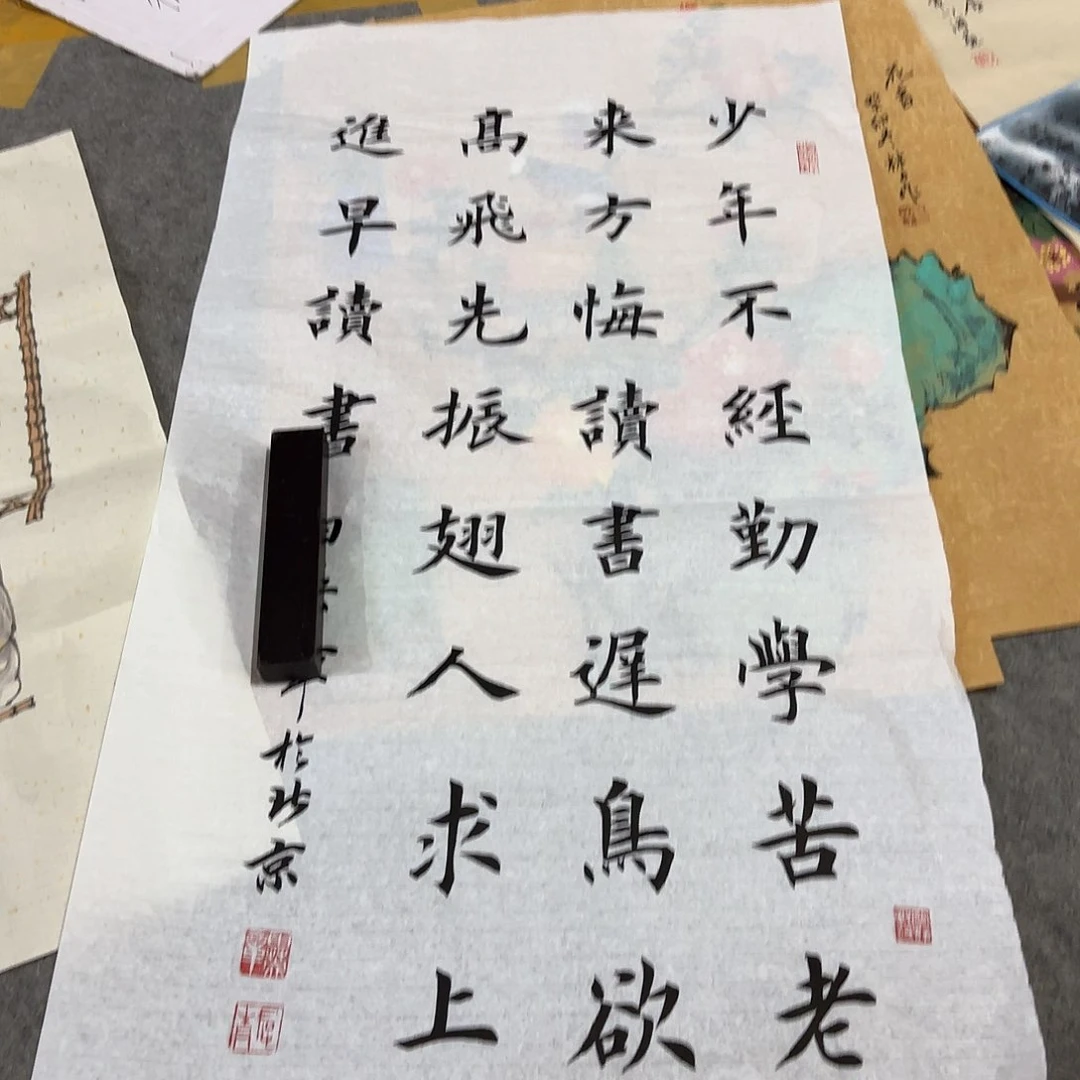 少年不經勤學苦老
来方悔讀書遲鳥欲
高飛先振翅人求上
進早讀書
於北京